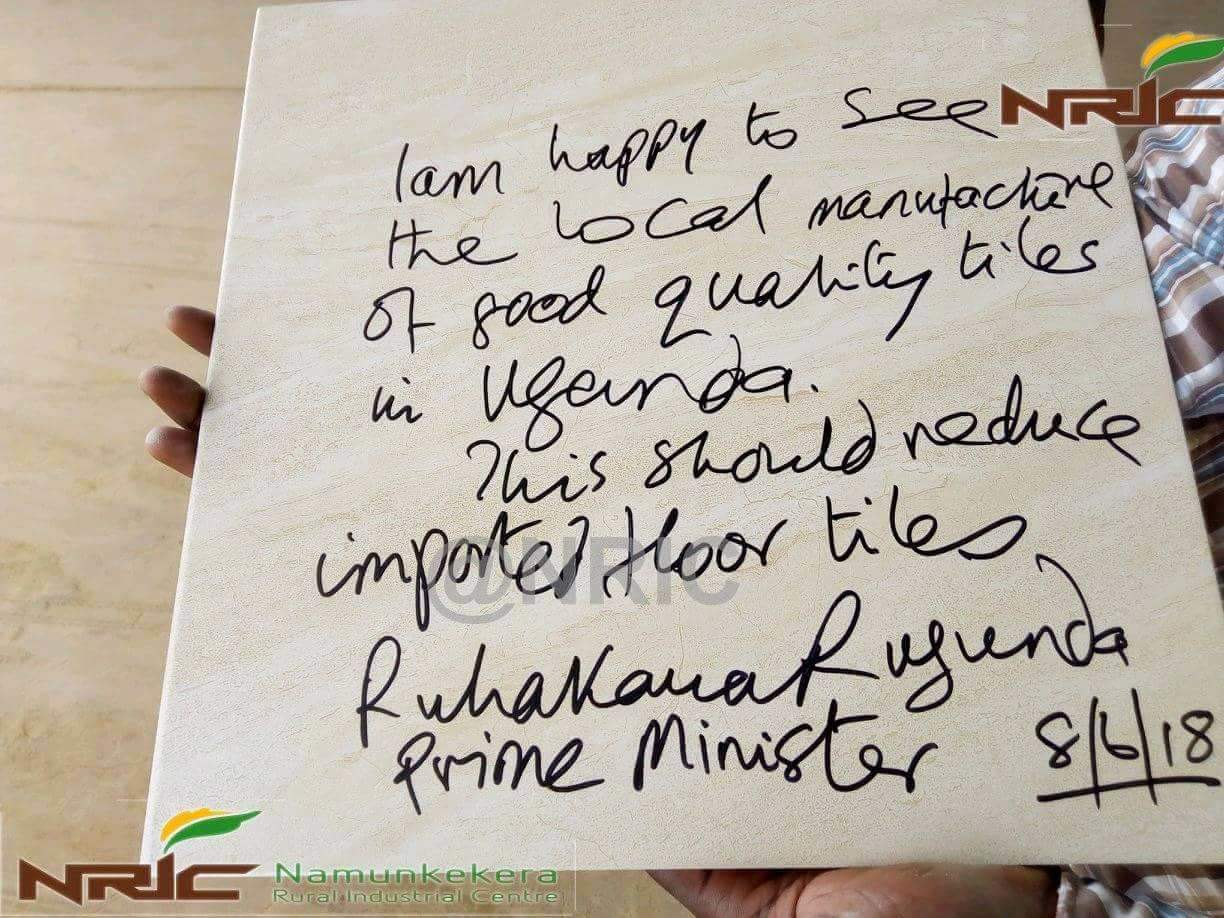 NRIC
Iam happy to see
the local manufacture
of good quality tiles
in Uganda.
This should reduce
imported floor tiles
@NRIC
Ruhakana Rugunda
Prime Minister 8/6/18
NRIC Namunkekera
Rural Industrial Centre